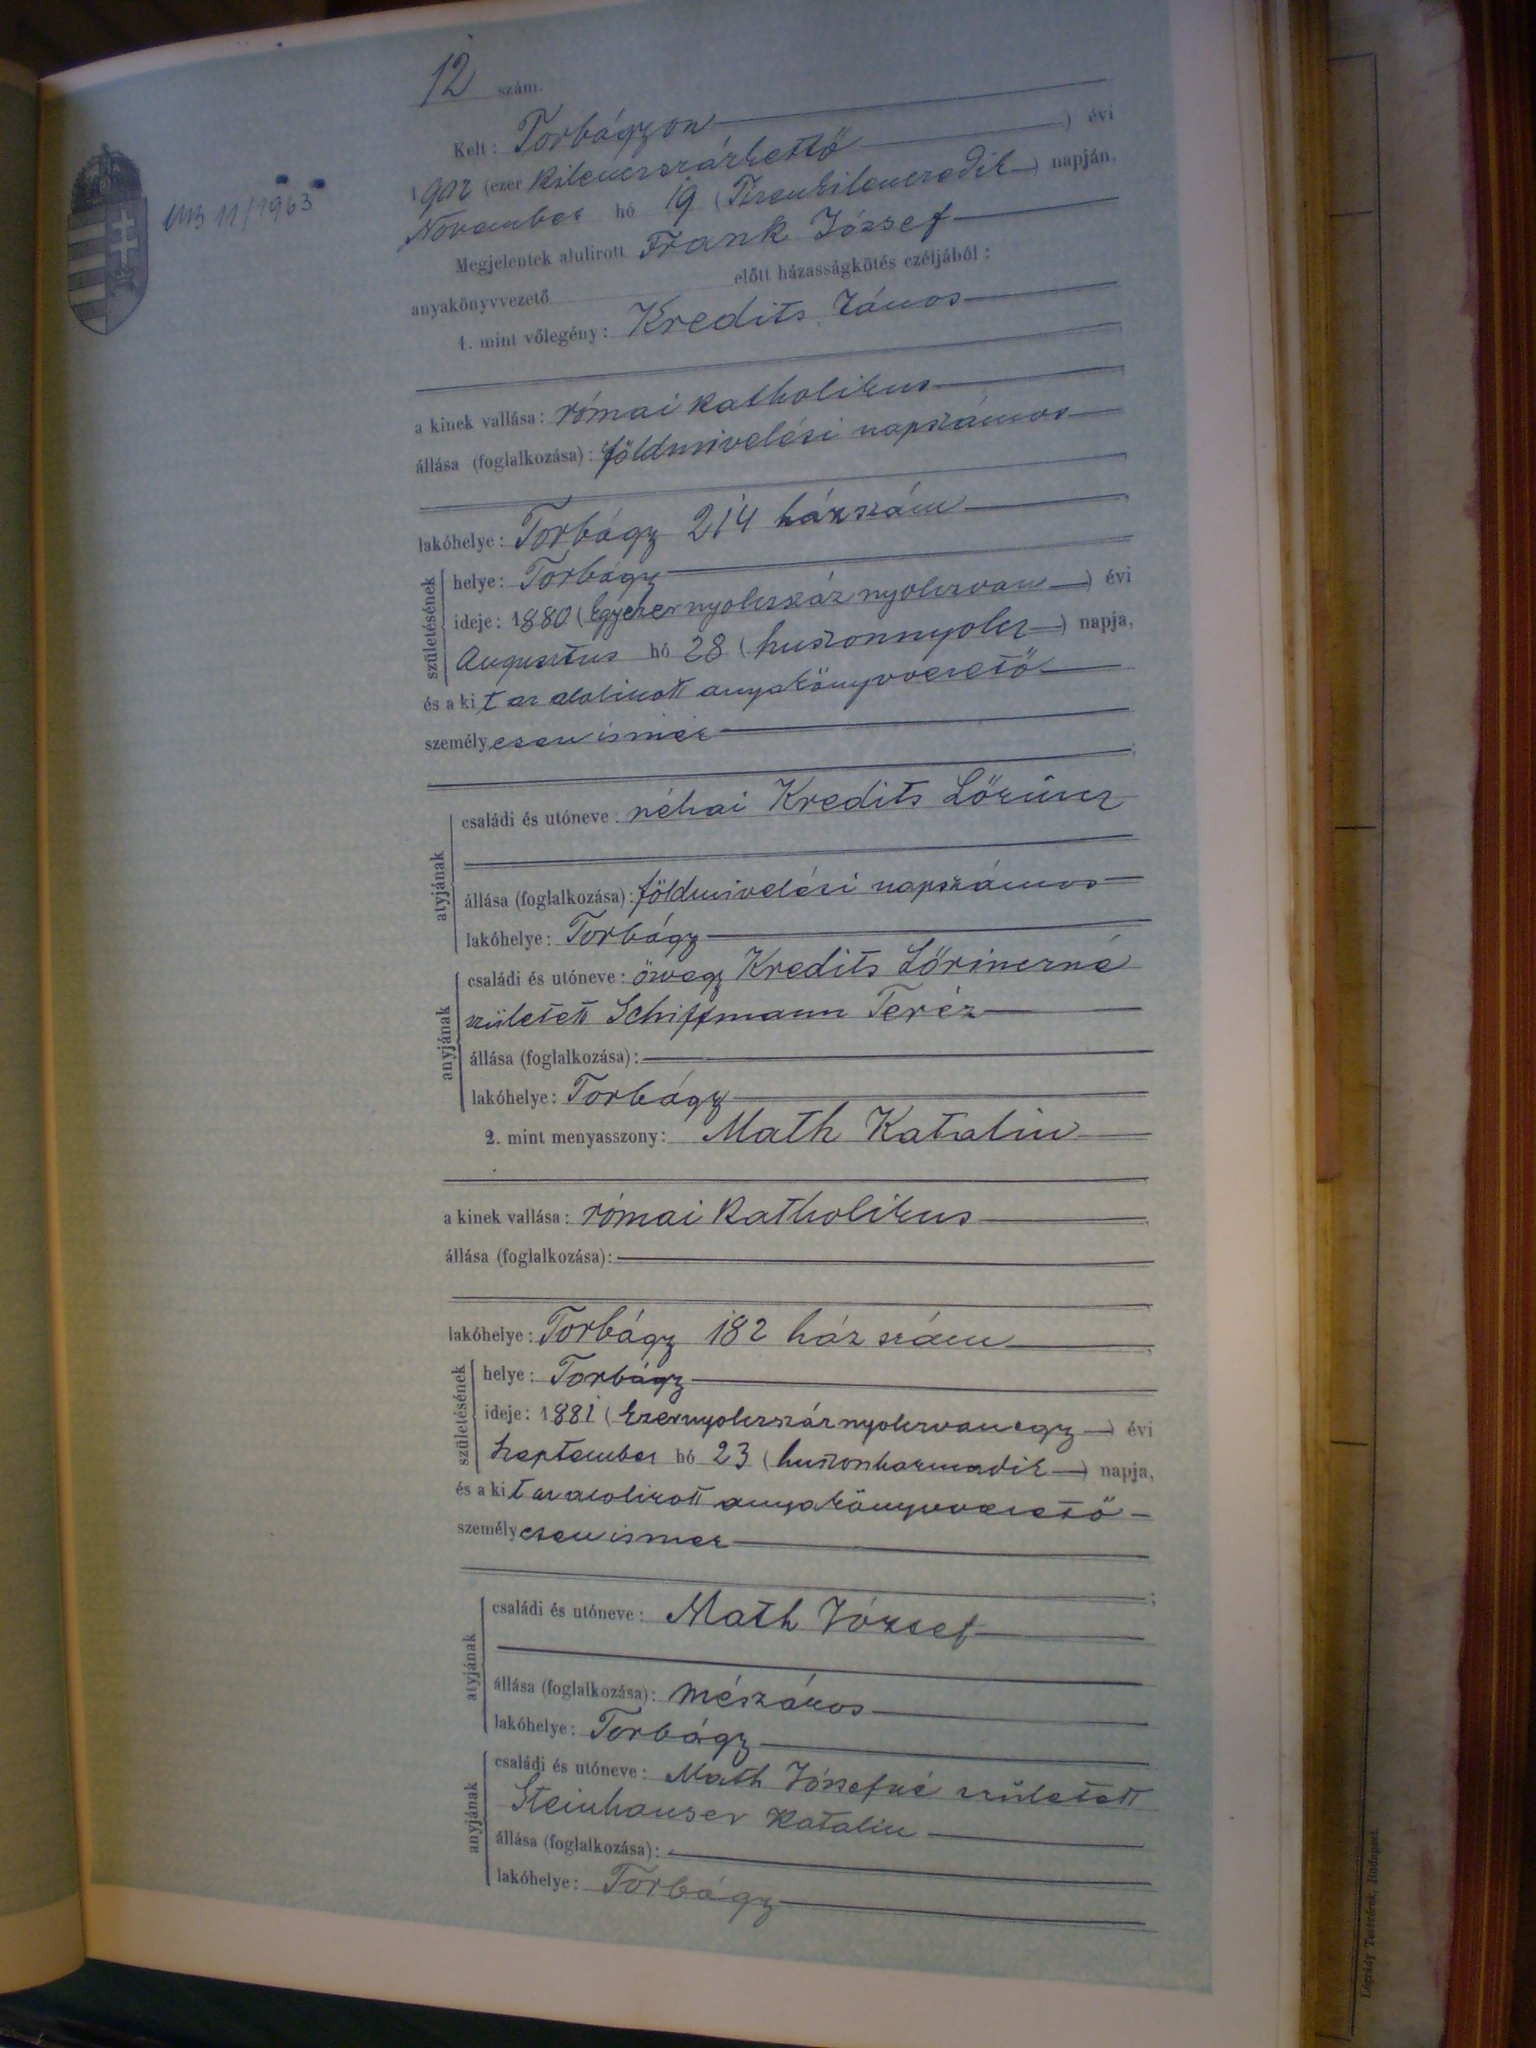 12 szám.
Kelt: Torbágyon
1902 (ezer kilenczszázkettő) évi
November hó 19 (Tizenkilenczedik) napján.
Megjelentek alulirott Frank József
anyakönyvvezető előtt házasságkötés czéljából:
1. mint vőlegény: Kredits János
a kinek vallása: római katholikus
állása (foglalkozása): földmivelési napszámos
lakóhelye: Torbágy 214 házszám
születésének
helye: Torbágy
ideje: 1880 (Egyezernyolczszáz nyolczvan) évi
Augusztus hó 28 (huszonnyolcz) napja,
és a kit az alolirott anyakönyvvezető
személyesen ismer
atyjának
családi és utóneve: néhai Kredits Lőrincz
állása (foglalkozása): földmivelési napszámos
lakóhelye: Torbágy
anyjának
családi és utóneve: özvegy Kredits Lőrinczné
született Schiffmann Teréz
állása (foglalkozása):
lakóhelye: Torbágy
2. mint menyasszony: Math Katalin
a kinek vallása: római katholikus
állása (foglalkozása):
lakóhelye: Torbágy 182 ház szám
születésének
helye: Torbágy
ideje: 1881 (Ezernyolczszáznyolczvanegy) évi
Szeptember hó 23 (huszonharmadik) napja,
és a kit az alolirott anyakönyvvezető
személyesen ismer
atyjának
családi és utóneve: Math József
állása (foglalkozása): mészáros
lakóhelye: Torbágy
anyjának
családi és utóneve: Math Józsefné született
Steinhauser Katalin
állása (foglalkozása):
lakóhelye: Torbágy
11/1963
Légrády Testvérek, Budapest.